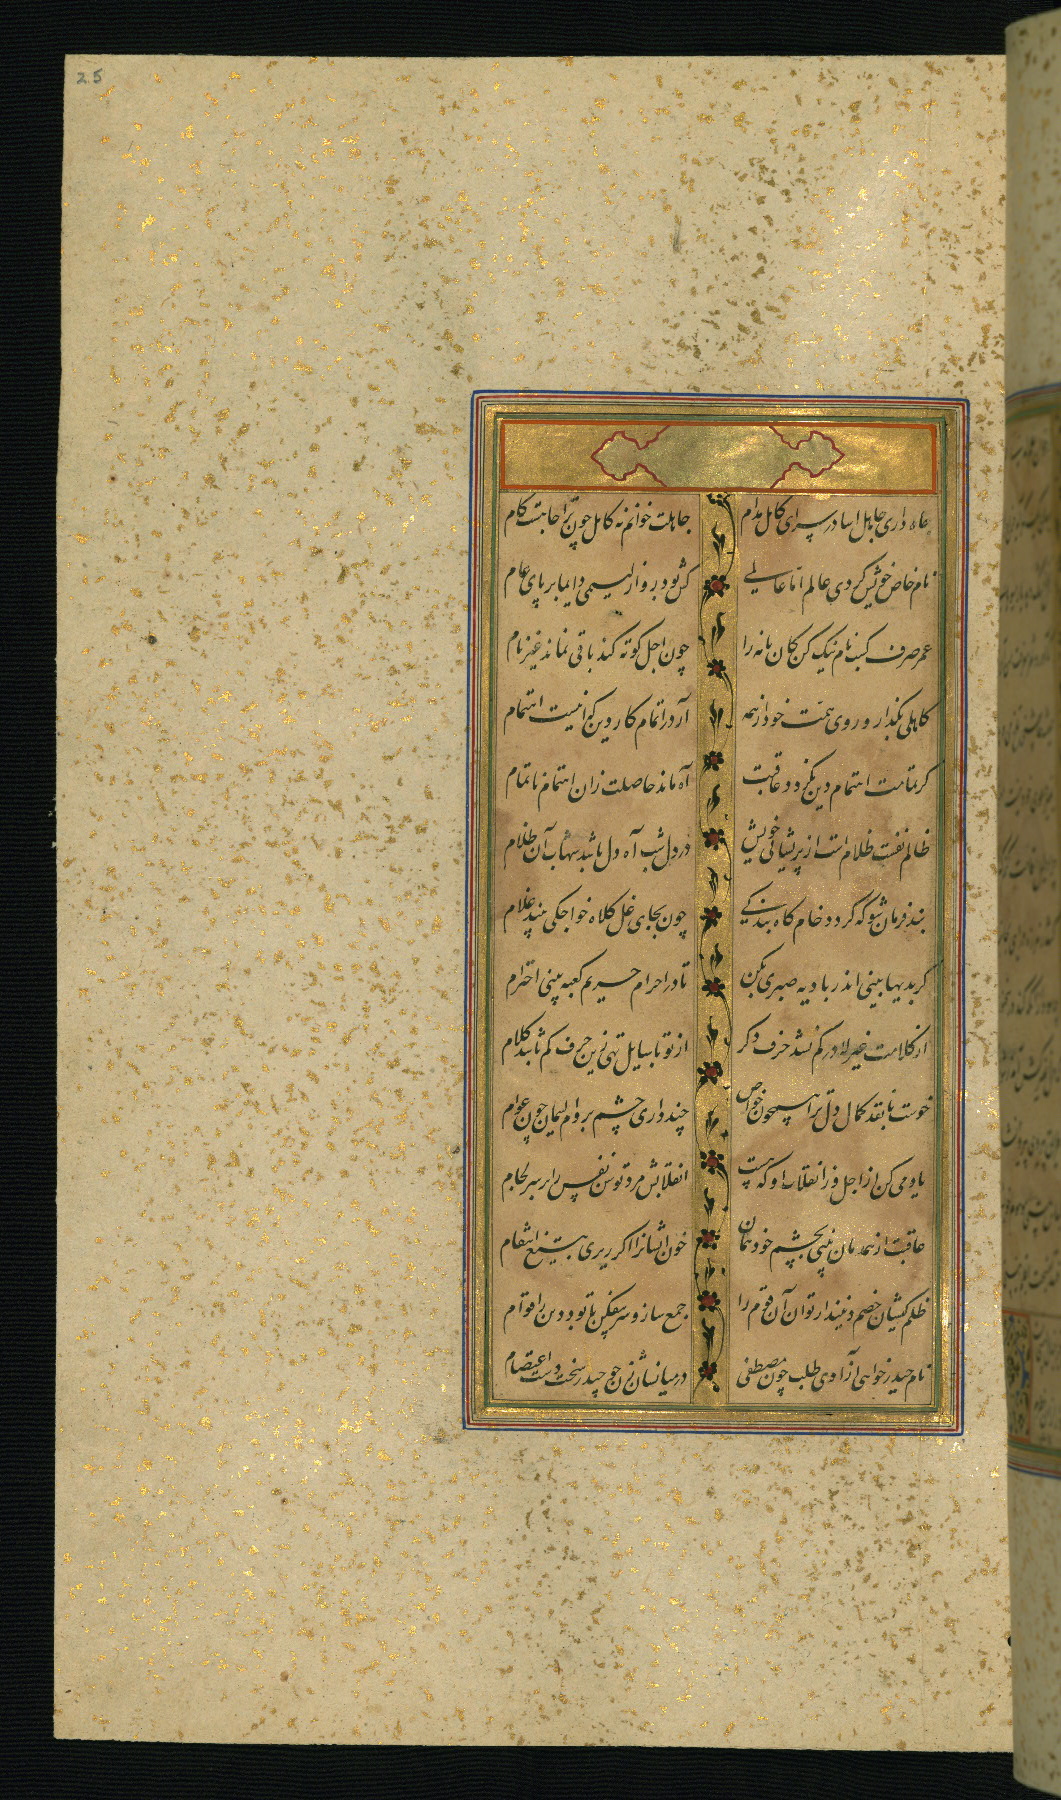 25
جاه داری جاهل اسا در سرای کامل مدام
جاهلت خوانم نه کامل چون ترا جا هست کام
نام خاص خویش کردی عالم اما عالمی
کش بود بر
عمر صرف کسب نام نیک کن کان مانه را
چون اجل کوته کند باقی نماند غیر نام
کاهلی بگذار و روی همت خود از همه
آر در اتمام کار دین کزانیست اهتمام
کر تمامت اهتمام دین نکردد عاقبت
آه ماند حاصلت زان اهتمام ناتمام
ظالم نفست ظلام است از پریشانی خویش
در دل شب آه دل باشد شهاب آن ظلام
بند فرمان شو که گردد خام کاه بندگی
چون بجای غل کلاه خواجکی بیند غلام
کر بدیها بینی اندر بادیه صبری بکن
تا در احرام حریم کعبه بینی احترام
از کلامت غیر لا در کم نشد حرف دکر
از تو تا سایل تهی زین حرف کم شاید کلام
خوست با نقد کمال دل ترا همچون خواص
چند داری چشم بر وام لئیمان چون عوام
یاد می کن از اجل وز انقلاب او که هست
انقلابش مرد توسن نفس را بر سر لجام
عاقبت از همدمان بینی بچشم خود همان
خون ایشانرا اکر ریزی بتیغ انتقام
ظلم کیشان خصم دیندار توان آن قوم را
جمع ساز و سر بفکن تا تو بود دین را قوام
نام حیدر خواهی آزادی طلب چون مصطفی
در میانشان زن چو حیدر سخت دست اعتصام